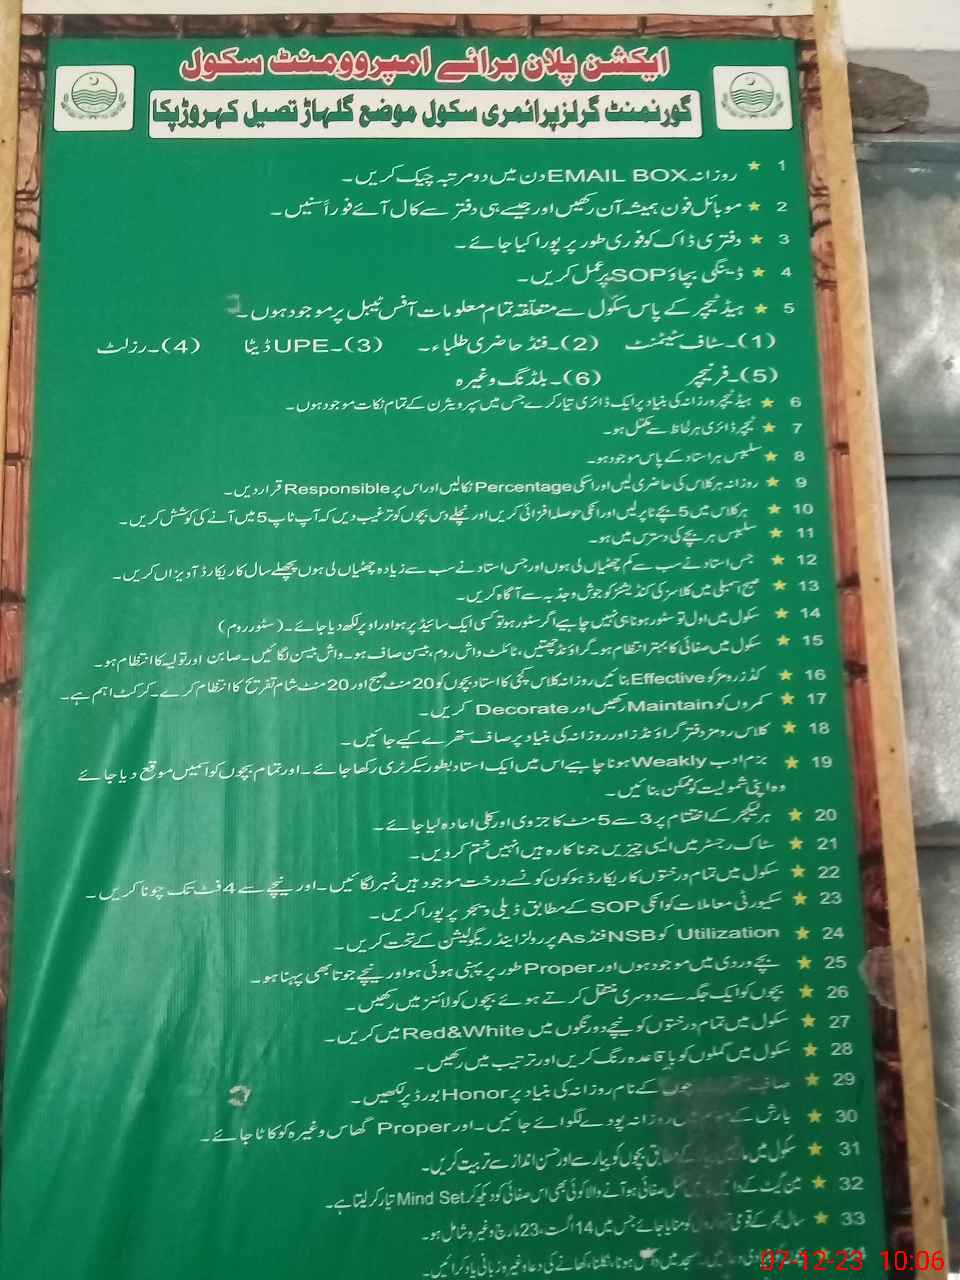 ایکشن پلان برائے امپروومنٹ سکول
گورنمنٹ گرلز پرائمری سکول موضع گلہاڑ تصیل کہروڑ پکا
1 ★ روزانہ EMAIL BOX دن میں دو مرتبہ چیک کریں۔
2 ★ موبائل فون ہمیشہ آن رکھیں اور جیسے ہی دفتر سے کال آئے فوراً سنیں۔
3 ★ دفتری ڈاک کو فوری طور پر پورا کیا جائے۔
4 ★ ڈینگی بچاؤ SOP پر عمل کریں۔
5 ★ ہیڈ ٹیچر کے پاس سکول سے متعلقہ تمام معلومات آفس ٹیبل پر موجود ہوں۔
(1)۔ سٹاف سٹیٹمنٹ (2)۔ فنڈ حاضری طلباء۔ (3)۔ UPE ڈیٹا (4)۔ رزلٹ
(5)۔ فرنیچر (6)۔ بلڈنگ وغیرہ
6 ★ ہیڈ ٹیچر روزانہ کی بنیاد پر ایک ڈائری تیار کرے جس میں سپرویژن کے تمام نکات موجود ہوں۔
7 ★ ٹیچر ڈائری ہر لحاظ سے مکمل ہو۔
8 ★ سلیبس ہر استاد کے پاس موجود ہو۔
9 ★ روزانہ ہر کلاس کی حاضری لیں اور اسکی Percentage نکالیں اور اس پر Responsible قرار دیں۔
10 ★ ہر کلاس میں 5 بچے ٹاپر لیں اور انکی حوصلہ افزائی کریں اور نچلے دس بچوں کو ترغیب دیں کہ آپ ٹاپ 5 میں آنے کی کوشش کریں۔
11 ★ سلیبس ہر بچے کی دسترس میں ہو۔
12 ★ جس استاد نے سب سے کم چھٹیاں لی ہوں اور جس استاد نے سب سے زیادہ چھٹیاں لی ہوں پچھلے سال کا ریکارڈ آویزاں کریں۔
13 ★ صبح اسمبلی میں کلاسز کی کنڈیشنز کو جوش و جذبہ سے آگاہ کریں۔
14 ★ سکول میں اول تو سٹور ہونا ہی نہیں چاہیے اگر سٹور ہو تو کسی ایک سائیڈ پر ہو اور اوپر لکھ دیا جائے۔ (سٹور روم)
15 ★ سکول میں صفائی کا بہتر انتظام ہو۔ گراؤنڈ چھتیں، ٹائلٹ واش روم، بیسن صاف ہو۔ واش بیسن لگائیں۔ صابن اور تولیہ کا انتظام ہو۔
16 ★ کڈز رومز کو Effective بنائیں روزانہ کلاس کچی کا استاد بچوں کو 20 منٹ صبح اور 20 منٹ شام تفریح کا انتظام کرے۔ کرکٹ اہم ہے۔
17 ★ کمروں کو Maintain رکھیں اور Decorate کریں۔
18 ★ کلاس رومز دفتر گراؤنڈز اور روزانہ کی بنیاد پر صاف ستھرے کیے جائیں۔
19 ★ بزم ادب Weakly ہونا چاہیے اس میں ایک استاد بطور سیکرٹری رکھا جائے۔ اور تمام بچوں کو اسمیں موقع دیا جائے
وہ اپنی شمولیت کو ممکن بنائیں۔
20 ★ ہر لیکچر کے اختتام پر 3 سے 5 منٹ کا جزوی اور کلی اعادہ لیا جائے۔
21 ★ سٹاک رجسٹر میں ایسی چیزیں جو ناکارہ ہیں انہیں ختم کر دیں۔
22 ★ سکول میں تمام درختوں کا ریکارڈ ہو کون کونسے درخت موجود ہیں نمبر لگائیں۔ اور نیچے سے 4 فٹ تک چونا کریں۔
23 ★ سکیورٹی معاملات کو انکی SOP کے مطابق ڈیلی ویجز پر پورا کریں۔
24 ★ Utilization کو NSB فنڈ As پر رولز اینڈ ریگولیشن کے تحت کریں۔
25 ★ بچے وردی میں موجود ہوں اور Proper طور پر پہنی ہوئی ہو اور نیچے جوتا بھی پہنا ہو۔
26 ★ بچوں کو ایک جگہ سے دوسری منتقل کرتے ہوئے بچوں کو لائنز میں رکھیں۔
27 ★ سکول میں تمام درختوں کو نیچے دو رنگوں میں Red&White میں کریں۔
28 ★ سکول میں گملوں کو باقاعدہ رنگ کریں اور ترتیب میں رکھیں۔
29 ★ کے نام روزانہ کی بنیاد پر Honor بورڈ پر لکھیں۔
30 ★ بارش کے روزانہ پودے لگوائے جائیں۔ اور Proper گھاس وغیرہ کو کاٹا جائے۔
31 ★ سکول میں مطابق بچوں کو پیار سے اور حسن انداز سے تربیت کریں۔
32 ★ مین گیٹ کے صفائی ہو آنے والا کوئی بھی اس صفائی کو دیکھ کر Mind Set تیار کر لیتا ہے۔
33 ★ سال بھر کے قومی کو منایا جائے جس میں 14 اگست، 23 مارچ وغیرہ شامل ہو۔
مسجد میں داخل ہونا، نکلنا، کھانے کی دعا وغیرہ زبانی یاد کرائیں۔
07-12-23 10:06